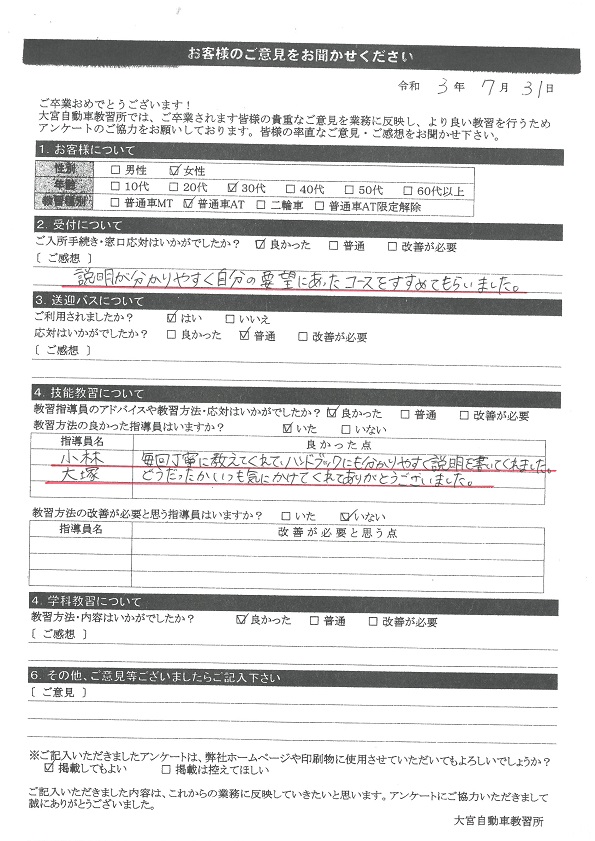 お客様のご意見をお聞かせください
令和 3 年 7 月 31 日
ご卒業おめでとうございます！
大宮自動車教習所では、ご卒業されます皆様の貴重なご意見を業務に反映し、より良い教習を行うため
アンケートのご協力をお願いしております。皆様の率直なご意見・ご感想をお聞かせ下さい。
1．お客様について
性別 □ 男性 ☑ 女性
年齢 □ 10代 □ 20代 ☑ 30代 □ 40代 □ 50代 □ 60代以上
教習種別 □ 普通車MT ☑ 普通車AT □ 二輪車 □ 普通車AT限定解除
2．受付について
ご入所手続き・窓口応対はいかがでしたか？ ☑ 良かった □ 普通 □ 改善が必要
〔 ご感想 〕
説明が分かりやすく自分の要望にあったコースをすすめてもらいました。
3．送迎バスについて
ご利用されましたか？ ☑ はい □ いいえ
応対はいかがでしたか？ □ 良かった ☑ 普通 □ 改善が必要
〔 ご感想 〕
4．技能教習について
教習指導員のアドバイスや教習方法・応対はいかがでしたか？ ☑ 良かった □ 普通 □ 改善が必要
教習方法の良かった指導員はいますか？ ☑ いた □ いない
指導員名 良かった点
小林 毎回丁寧に教えてくれて、ハンドブックにも分かりやすく説明を書いてくれました。
大塚 どうだったかいつも気にかけてくれてありがとうございました。
教習方法の改善が必要と思う指導員はいますか？ □ いた ☑ いない
指導員名 改善が必要と思う点
4．学科教習について
教習方法・内容はいかがでしたか？ ☑ 良かった □ 普通 □ 改善が必要
〔 ご感想 〕
6．その他、ご意見等ございましたらご記入下さい
〔 ご意見 〕
※ご記入いただきましたアンケートは、弊社ホームページや印刷物に使用させていただいてもよろしいでしょうか？
☑ 掲載してもよい □ 掲載は控えてほしい
ご記入いただきました内容は、これからの業務に反映していきたいと思います。アンケートにご協力いただきまして
誠にありがとうございました。
大宮自動車教習所